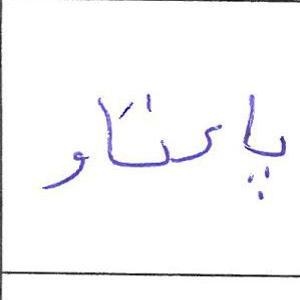 پارتاو